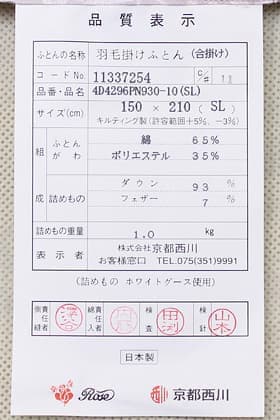 品質表示
ふとんの名称 羽毛掛けふとん (合掛け)
コードNo. 11337254 C/# 18
品番・品名 4D4296PN930-10(SL)
サイズ(cm) 150 × 210 (SL)
キルティング製(許容範囲+5%、-3%)
組成 ふとんがわ 綿 65%
ポリエステル 35%
詰めもの ダウン 93 %
フェザー 7 %
詰めもの重量 1.0 kg
表示者 株式会社 京都西川
お客様窓口 TEL.075(351)9991
(詰めもの ホワイトグース使用)
側責任縫者 深谷 綿責任入者 検査 田渕 検針 山本
日本製
Rose 京都西川